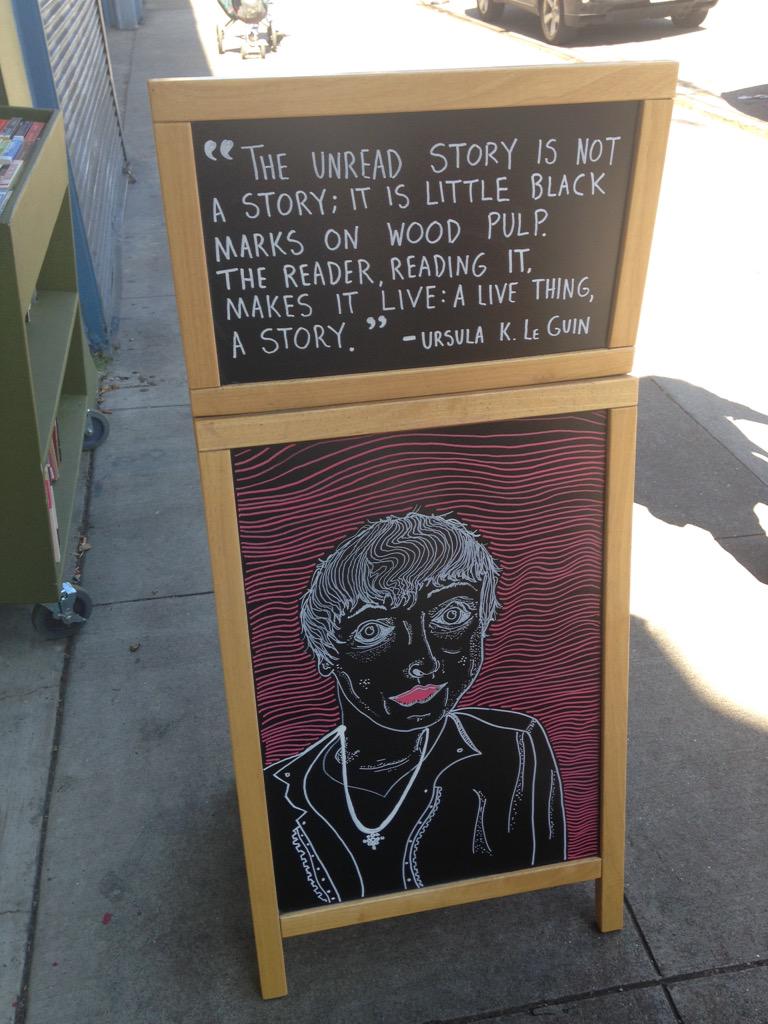 “ THE UNREAD STORY IS NOT
A STORY; IT IS LITTLE BLACK
MARKS ON WOOD PULP.
THE READER, READING IT,
MAKES IT LIVE: A LIVE THING,
A STORY. ” – URSULA K. LE GUIN